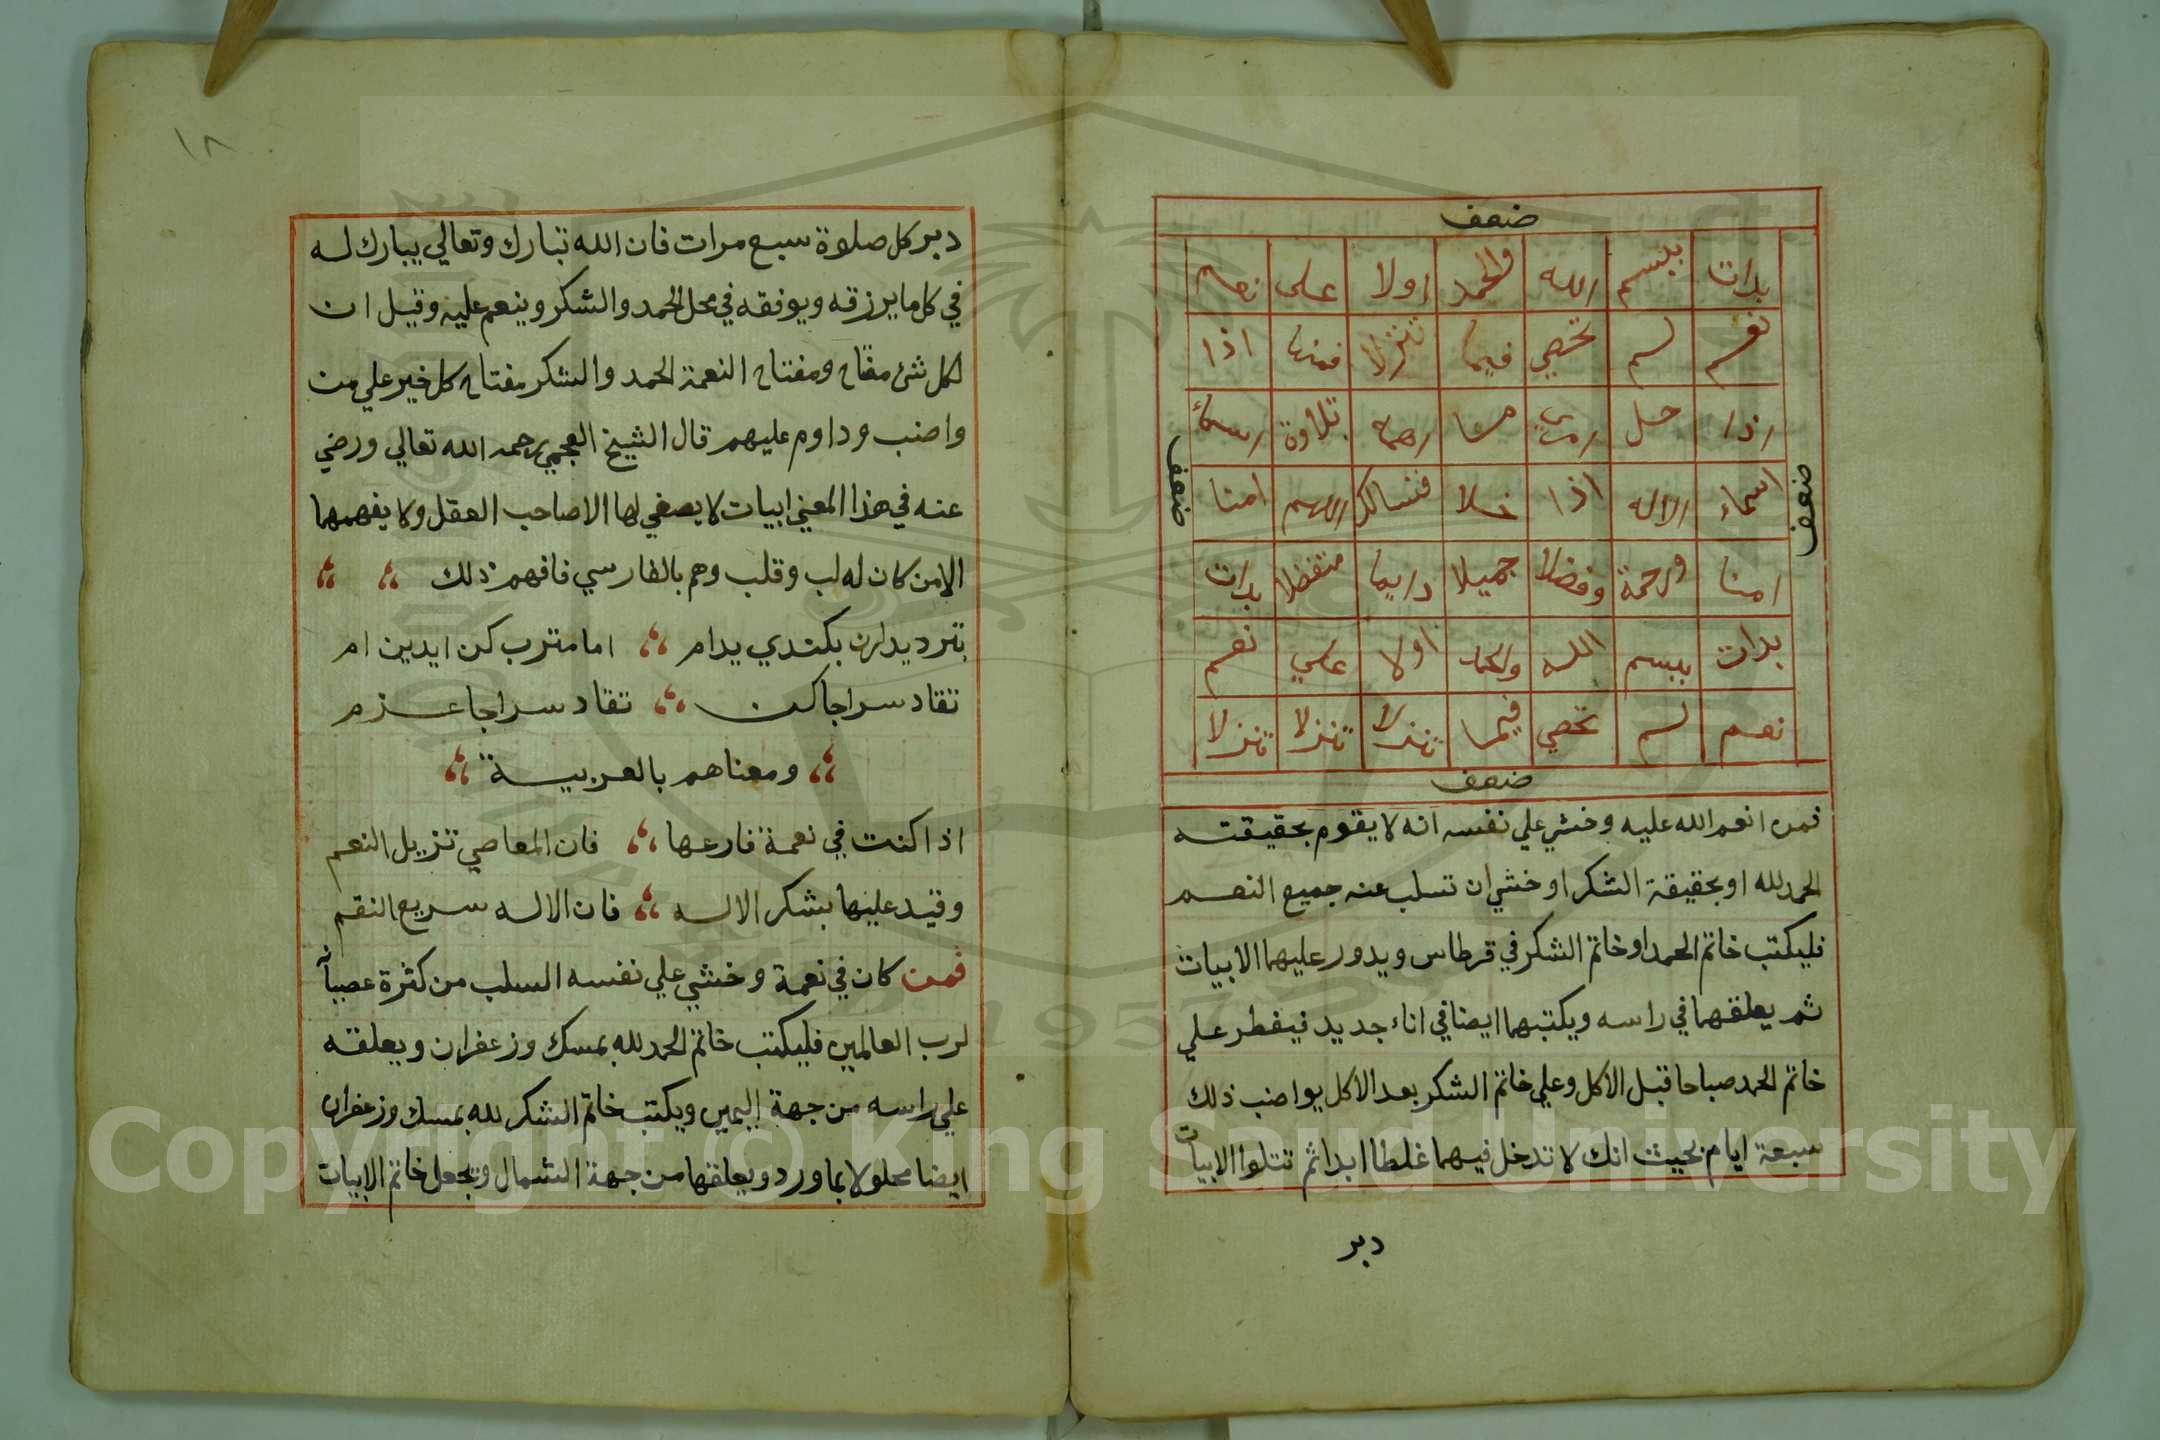 ضعف
بدات ببسم الله والحمد اولا على نعم
نعم لم تحصي فيما تنزلا فمنها اذا
اذا حل تلاوة
اسماء الاله اذا خلا فنسالك اللهم امنا
امنا ورحمة وفضلا جميلا دايما متفضلا بدات
بدات ببسم الله والحمد اولا علي نعم
نعم لم تحصي فيما تنزلا تنزلا تنزلا
ضعف
ضعف
ضعف
فمن انعم الله عليه وخشي علي نفسه انه لا يقوم بحقيقته
الحمد لله او بحقيقة الشكر او خشي ان تسلب عنه جميع النعم
فليكتب خاتم الحمد او خاتم الشكر في قرطاس ويدور عليهما الابيات
ثم يعلقهما في راسه ويكتبهما ايضا في اناء جديد فيفطر علي
خاتم الحمد صباحا قبل الاكل وعلي خاتم الشكر بعد الاكل يواضب ذلك
سبعة ايام بحيث انك لا تدخل فيهما غلطا ابدا ثم تتلوا الابيات
دبر
١٨
دبر كل صلوة سبع مرات فان الله تبارك وتعالي يبارك له
في كل ما يرزقه ويوفقه في محل الحمد والشكر وينعم عليه وقيل ان
لكل شئ مفتاح ومفتاح النعمة الحمد والشكر مفتاح كل خير علي من
واضب وداوم عليهم قال الشيخ العجمي رحمه الله تعالي ورضي
عنه في هذا المعني ابيات لا يصغي لها الا صاحب العقل ولا يفهمها
الا من كان له لب وقلب وهم بالفارسي فافهم ذلك
بكتدي يدام اما مترب كن ايدين ام
تقاد سراجا كن تقاد سراجا عزم
ومعناهم بالعربية
اذا كنت في نعمة فارعها فان المعاصي تزيل النعم
وقيد عليها بشكر الاله فان الاله سريع النقم
فمن كان في نعمة وخشي علي نفسه السلب من كثرة عصيانه
لرب العالمين فليكتب خاتم الحمد لله بمسك وزعفران ويعلقه
علي راسه من جهة اليمين ويكتب خاتم الشكر لله بمسك وزعفران
ايضا محلولا بماورد ويعلقها من جهة الشمال وتجعل خاتم الابيات
Copyright © King Saud University
1957